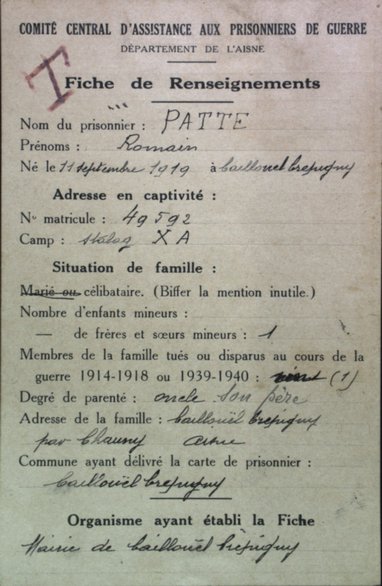 COMITÉ CENTRAL D'ASSISTANCE AUX PRISONNIERS DE GUERRE
DÉPARTEMENT DE L'AISNE
T
Fiche de Renseignements
Nom du prisonnier : PATTE
Prénoms : Romain
Né le 11 septembre 1919 à Caillouel Crepigny
Adresse en captivité :
No matricule : 49592
Camp : stalag X A
Situation de famille :
Marié ou célibataire. (Biffer la mention inutile.)
Nombre d'enfants mineurs :
— de frères et sœurs mineurs : 1
Membres de la famille tués ou disparus au cours de la
guerre 1914-1918 ou 1939-1940 : (1)
Degré de parenté : oncle son père
Adresse de la famille : Caillouël Crepigny
par Chauny Aisne
Commune ayant délivré la carte de prisonnier :
Caillouël Crepigny
Organisme ayant établi la Fiche
Mairie de Caillouël Crépigny